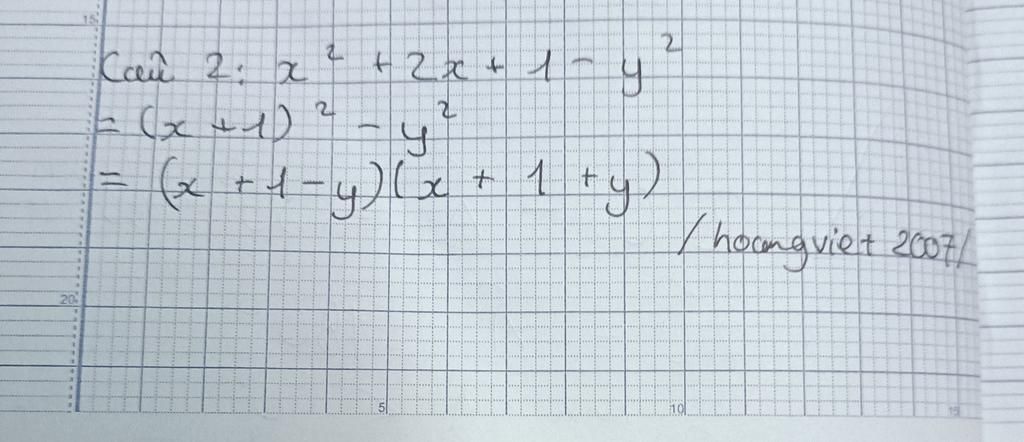 15
Câu 2: x² + 2x + 1 - y²
= (x + 1)² - y²
= (x + 1 - y)(x + 1 + y)
/hoangviet 2007/
20
5 10 15